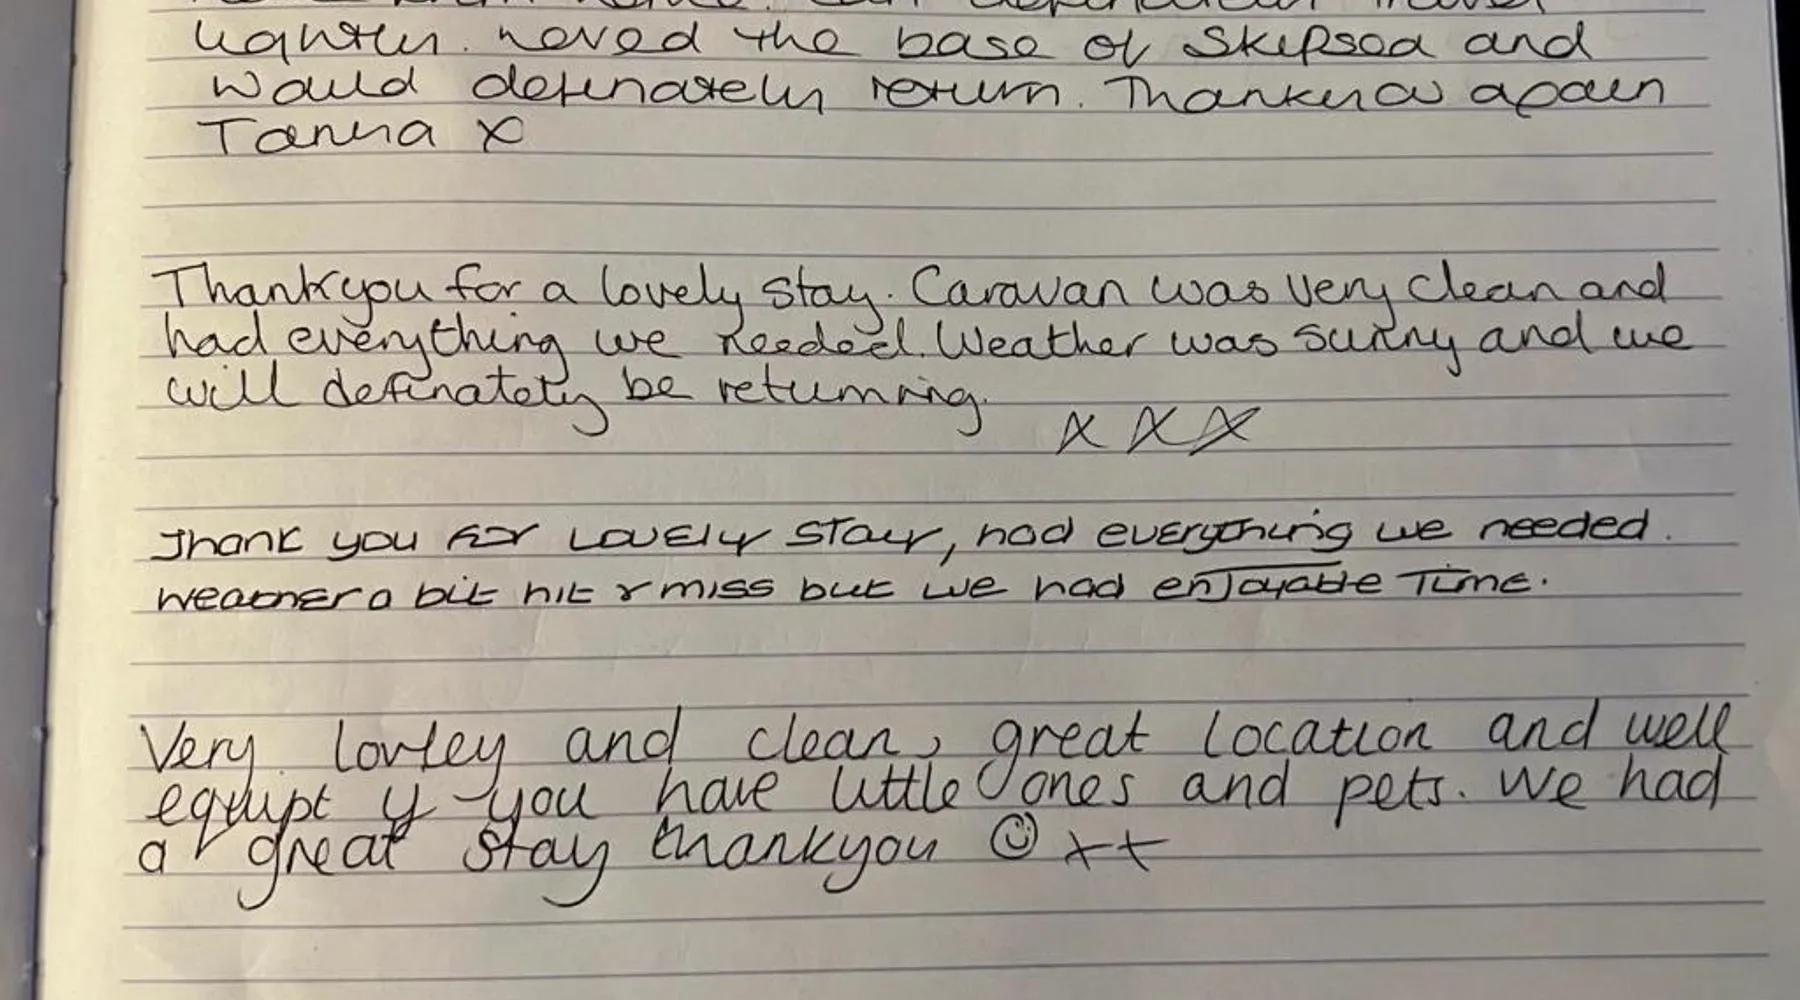 lightly. Loved the base of Skipsea and
would definately return. Thankyou again
Tanya x
Thankyou for a lovely stay. Caravan was very clean and
had everything we needed. Weather was sunny and we
will definately be returning.
x x x
Thank you for Lovely stay, had everything we needed.
weather a bit hit & miss but we had enjoyable Time.
Very lovley and clean, great location and well
equipt if you have little ones and pets. We had
a great stay thankyou ☺ xx